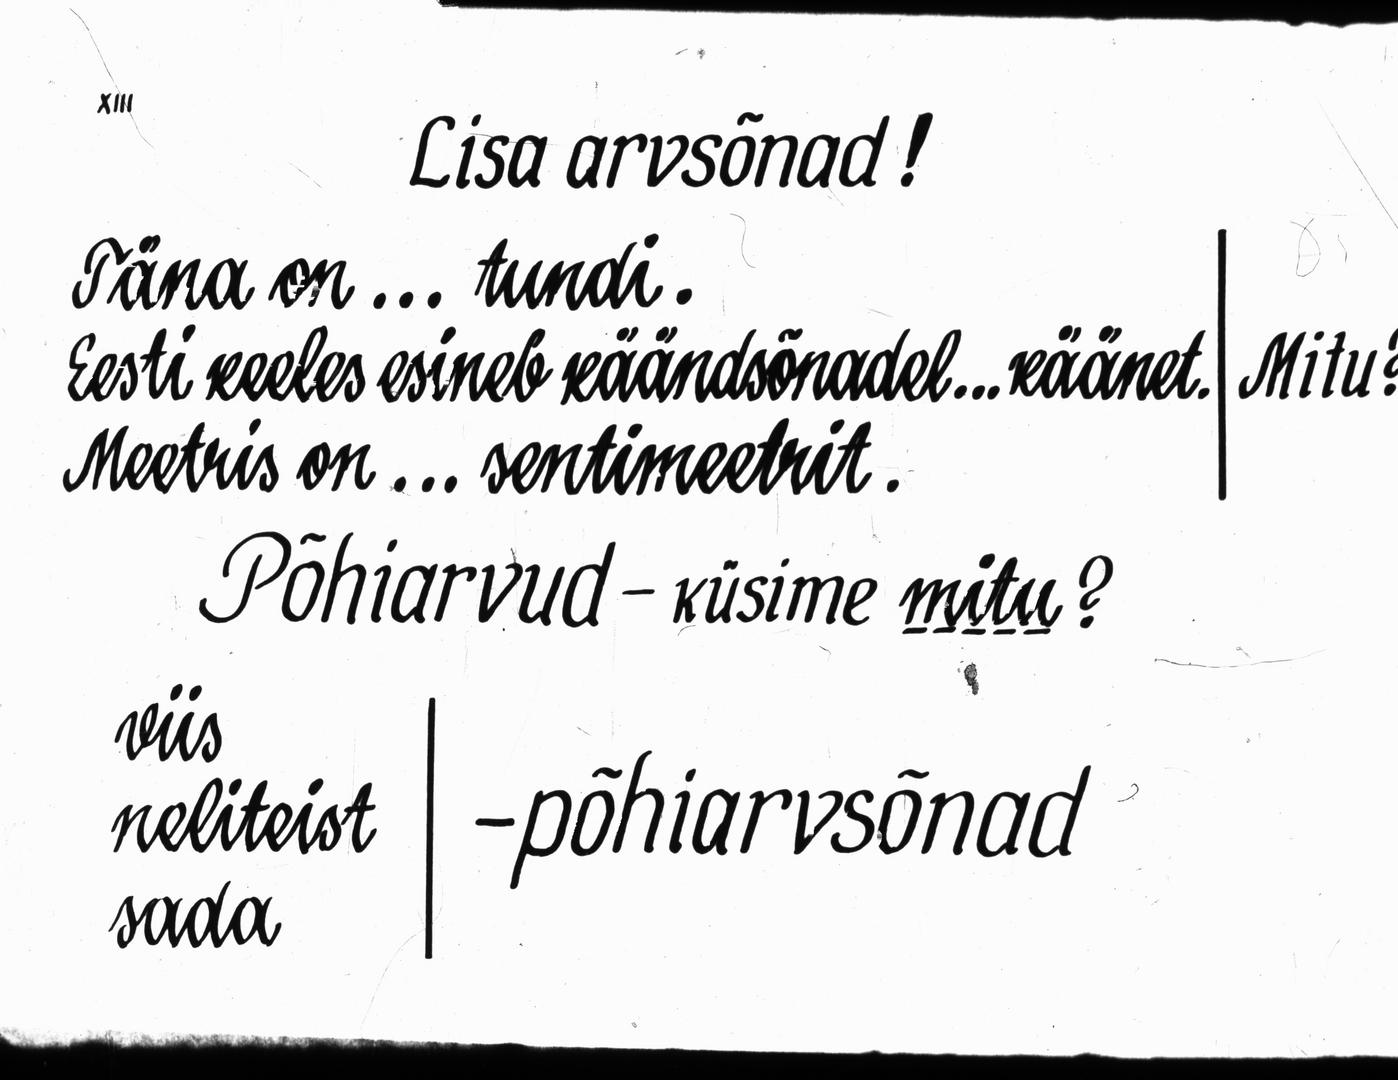 XIII
Lisa arvsõnad!
Täna on ... tundi.
Eesti keeles esineb käändsõnadel... käänet. | Mitu?
Meetris on ... sentimeetrit.
Põhiarvud – küsime mitu?
viis
neliteist
–põhiarvsõnad
sada